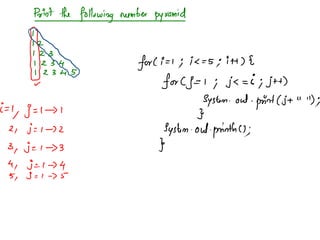 Print the following number pyramid
1
1 2
1 2 3
1 2 3 4
1 2 3 4 5
i=1, j=1→1
2, j=1→2
3, j=1→3
4, j=1→4
5, j=1→5
for(i=1 ; i<=5 ; i++) {
for(j=1 ; j<=i ; j++)
System.out.print(j+" ");
}
System.out.println();
}